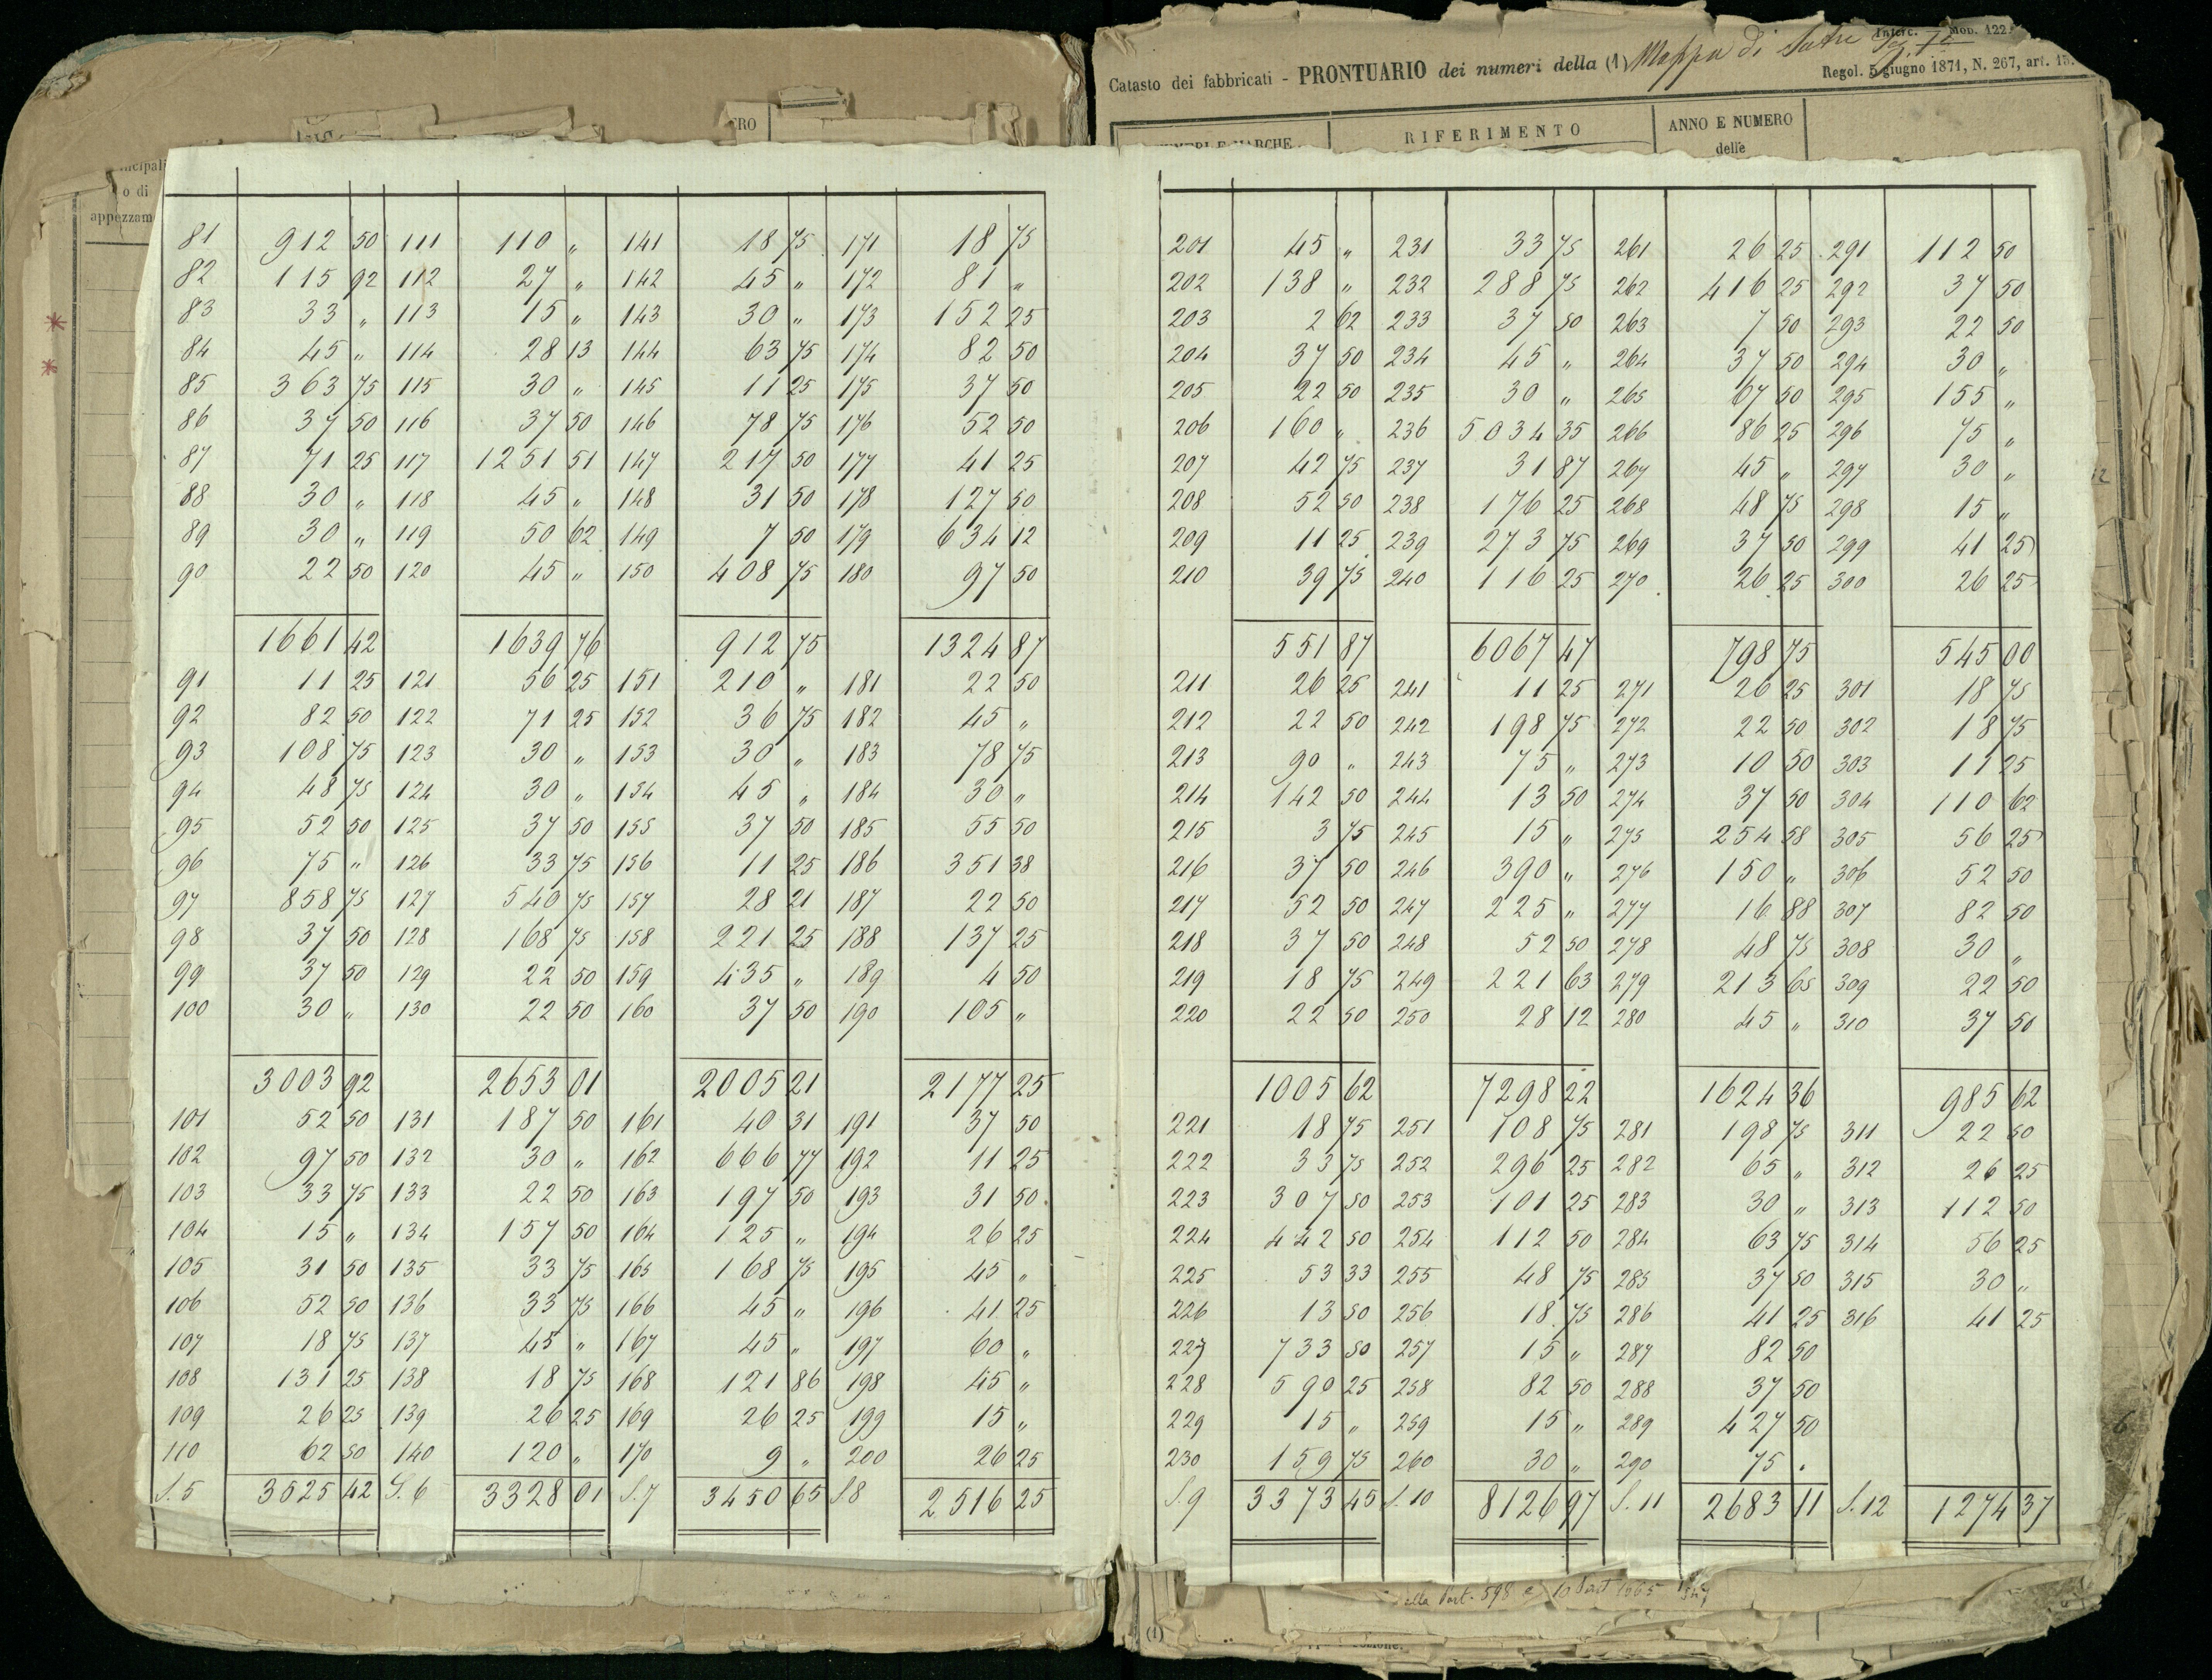 Interc. Mod. 122.
Catasto dei fabbricati - PRONTUARIO dei numeri della (1) Mappa di
Regol. 5 giugno 1871, N. 267, art. 15.
RIFERIMENTO
ANNO E NUMERO
delle
ERO
o di
appezzam
81 912 50 111 110 " 141 18 75 171 18 75
82 115 92 112 27 " 142 45 " 172 81 "
83 33 " 113 15 " 143 30 " 173 152 25
84 45 " 114 28 13 144 63 75 174 82 50
85 363 75 115 30 " 145 11 25 175 37 50
86 37 50 116 37 50 146 78 75 176 52 50
87 71 25 117 1251 51 147 217 50 177 41 25
88 30 " 118 45 " 148 31 50 178 127 50
89 30 " 119 50 62 149 7 50 179 634 12
90 22 50 120 45 " 150 408 75 180 97 50
1661 42 1639 76 912 75 1324 87
91 11 25 121 56 25 151 210 " 181 22 50
92 82 50 122 71 25 152 36 75 182 45 "
93 108 75 123 30 " 153 30 " 183 78 75
94 48 75 124 30 " 154 45 " 184 30 "
95 52 50 125 37 50 155 37 50 185 55 50
96 75 " 126 33 75 156 11 25 186 351 38
97 858 75 127 540 75 157 28 21 187 22 50
98 37 50 128 168 75 158 221 25 188 137 25
99 37 50 129 22 50 159 435 " 189 4 50
100 30 " 130 22 50 160 37 50 190 105 "
3003 92 2653 01 2005 21 2177 25
101 52 50 131 187 50 161 40 31 191 37 50
102 97 50 132 30 " 162 666 77 192 11 25
103 33 75 133 22 50 163 197 50 193 31 50
104 15 " 134 157 50 164 125 " 194 26 25
105 31 50 135 33 75 165 168 75 195 45 "
106 52 50 136 33 75 166 45 " 196 41 25
107 18 75 137 45 " 167 45 " 197 60 "
108 131 25 138 18 75 168 121 86 198 45 "
109 26 25 139 26 25 169 26 25 199 15 "
110 62 50 140 120 " 170 9 " 200 26 25
S. 5 3525 42 S. 6 3328 01 S. 7 3450 65 S. 8 2516 25
201 45 " 231 33 75 261 26 25 291 112 50
202 138 " 232 288 75 262 416 25 292 37 50
203 2 62 233 37 50 263 7 50 293 22 50
204 37 50 234 45 " 264 37 50 294 30 "
205 22 50 235 30 " 265 67 50 295 155 "
206 160 " 236 5034 35 266 86 25 296 75 "
207 42 75 237 31 87 267 45 " 297 30 "
208 52 50 238 176 25 268 48 75 298 15 "
209 11 25 239 273 75 269 37 50 299 41 25
210 39 75 240 116 25 270 26 25 300 26 25
551 87 6067 47 798 75 545 00
211 26 25 241 11 25 271 26 25 301 18 75
212 22 50 242 198 75 272 22 50 302 18 75
213 90 " 243 75 " 273 10 50 303 11 25
214 142 50 244 13 50 274 37 50 304 110 62
215 3 75 245 15 " 275 254 58 305 56 25
216 37 50 246 390 " 276 150 " 306 52 50
217 52 50 247 225 " 277 16 88 307 82 50
218 37 50 248 52 50 278 48 75 308 30 "
219 18 75 249 221 63 279 213 65 309 22 50
220 22 50 250 28 12 280 45 " 310 37 50
1005 62 7298 22 1624 36 985 62
221 18 75 251 108 75 281 198 75 311 22 50
222 33 75 252 296 25 282 65 " 312 26 25
223 307 50 253 101 25 283 30 " 313 112 50
224 442 50 254 112 50 284 63 75 314 56 25
225 53 33 255 48 75 285 37 50 315 30 "
226 13 50 256 18 75 286 41 25 316 41 25
227 733 50 257 15 " 287 82 50
228 590 25 258 82 50 288 37 50
229 15 " 259 15 " 289 427 50
230 159 75 260 30 " 290 75 "
S. 9 3373 45 S. 10 8126 97 S. 11 2683 11 S. 12 1274 37
(1)